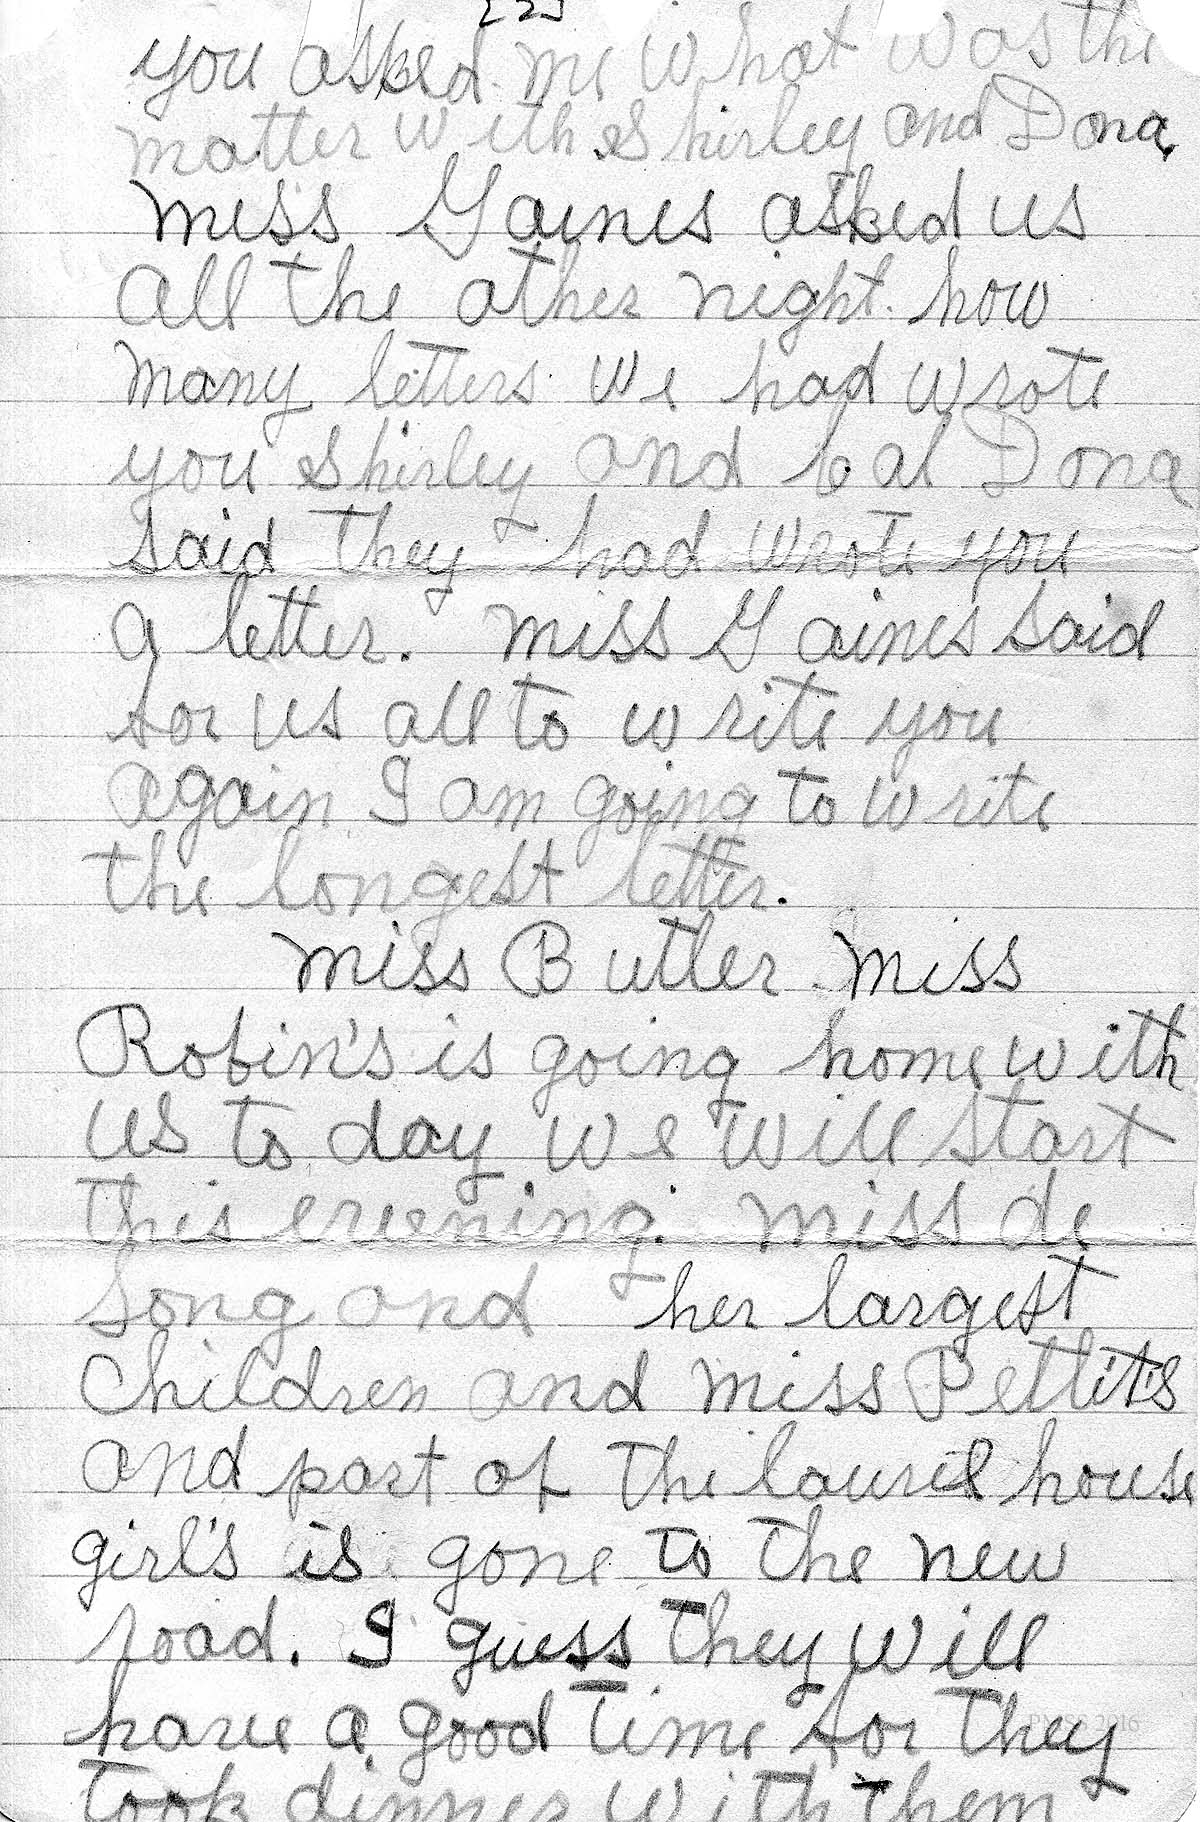 [2]
you asked me what was the
matter with Shirley and Dona,
miss Gaines asked us
all the other night. how
many letters we had wrote
you Shirley and Cal Dona
said they had wrote you
a letter. miss Gaines said
for us all to write you
again I am going to write
the longest letter.
miss Butler miss
Robin's is going home with
us to day we will start
this ereening. miss de
Long and her largest
Children and miss Pettits
and part of the laurel house
girl's is gone to the new
road. I guess they will
have a good time for they
took dinner with them
PMSS 2016